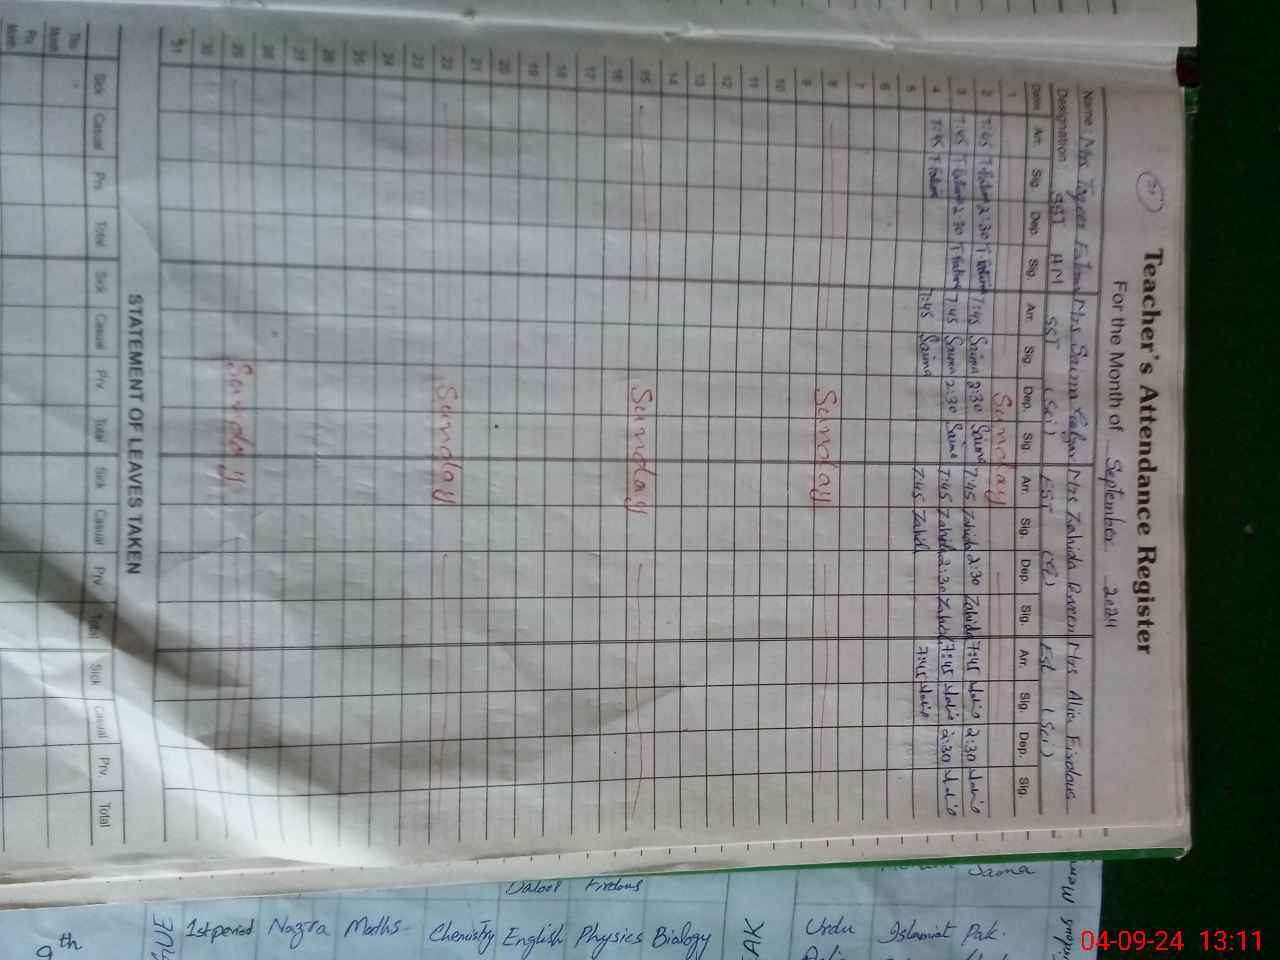 Teacher's Attendance Register
For the Month of September 2024
Name: Mrs Fatima Mrs Saima Mrs Zahida Parveen Mrs Alia Firdous
Designation: SST HM SST (Sci) EST EST (Sci)
Date Arr. Sig. Dep. Sig. Arr. Sig. Dep. Sig. Arr. Sig. Dep. Sig. Arr. Sig. Dep. Sig.
1 Sunday
2 7:45 T. Fatima 2:30 T. Fatima 7:45 Saima 2:30 Saima 7:45 Zahida 2:30 Zahida 7:45 2:30
3 7:45 T. Fatima 2:30 T. Fatima 7:45 Saima 2:30 Saima 7:45 Zahida 2:30 Zahida 7:45 2:30
4 7:45 T. Fatima 7:45 Saima 7:45 Zahid 7:45
5
6
7
8 Sunday
9
10
11
12
13
14
15 Sunday
16
17
18
19
20
21
22 Sunday
23
24
25
26
27
28
29 Sunday
30
31
STATEMENT OF LEAVES TAKEN
Sick Casual Prv. Total Sick Casual Prv. Total Sick Casual Prv. Total Sick Casual Prv. Total
This Month
Prv. Month
Firdous Saima
9th 1st period Nazra Maths Chemistry English Physics Biology Urdu Islamiat Pak.
04-09-24 13:11